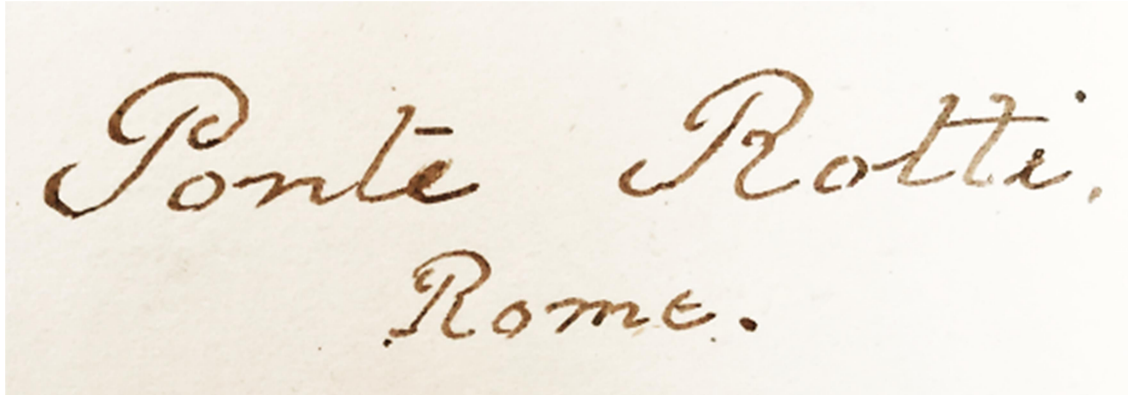 Ponte Rotti.
Rome.